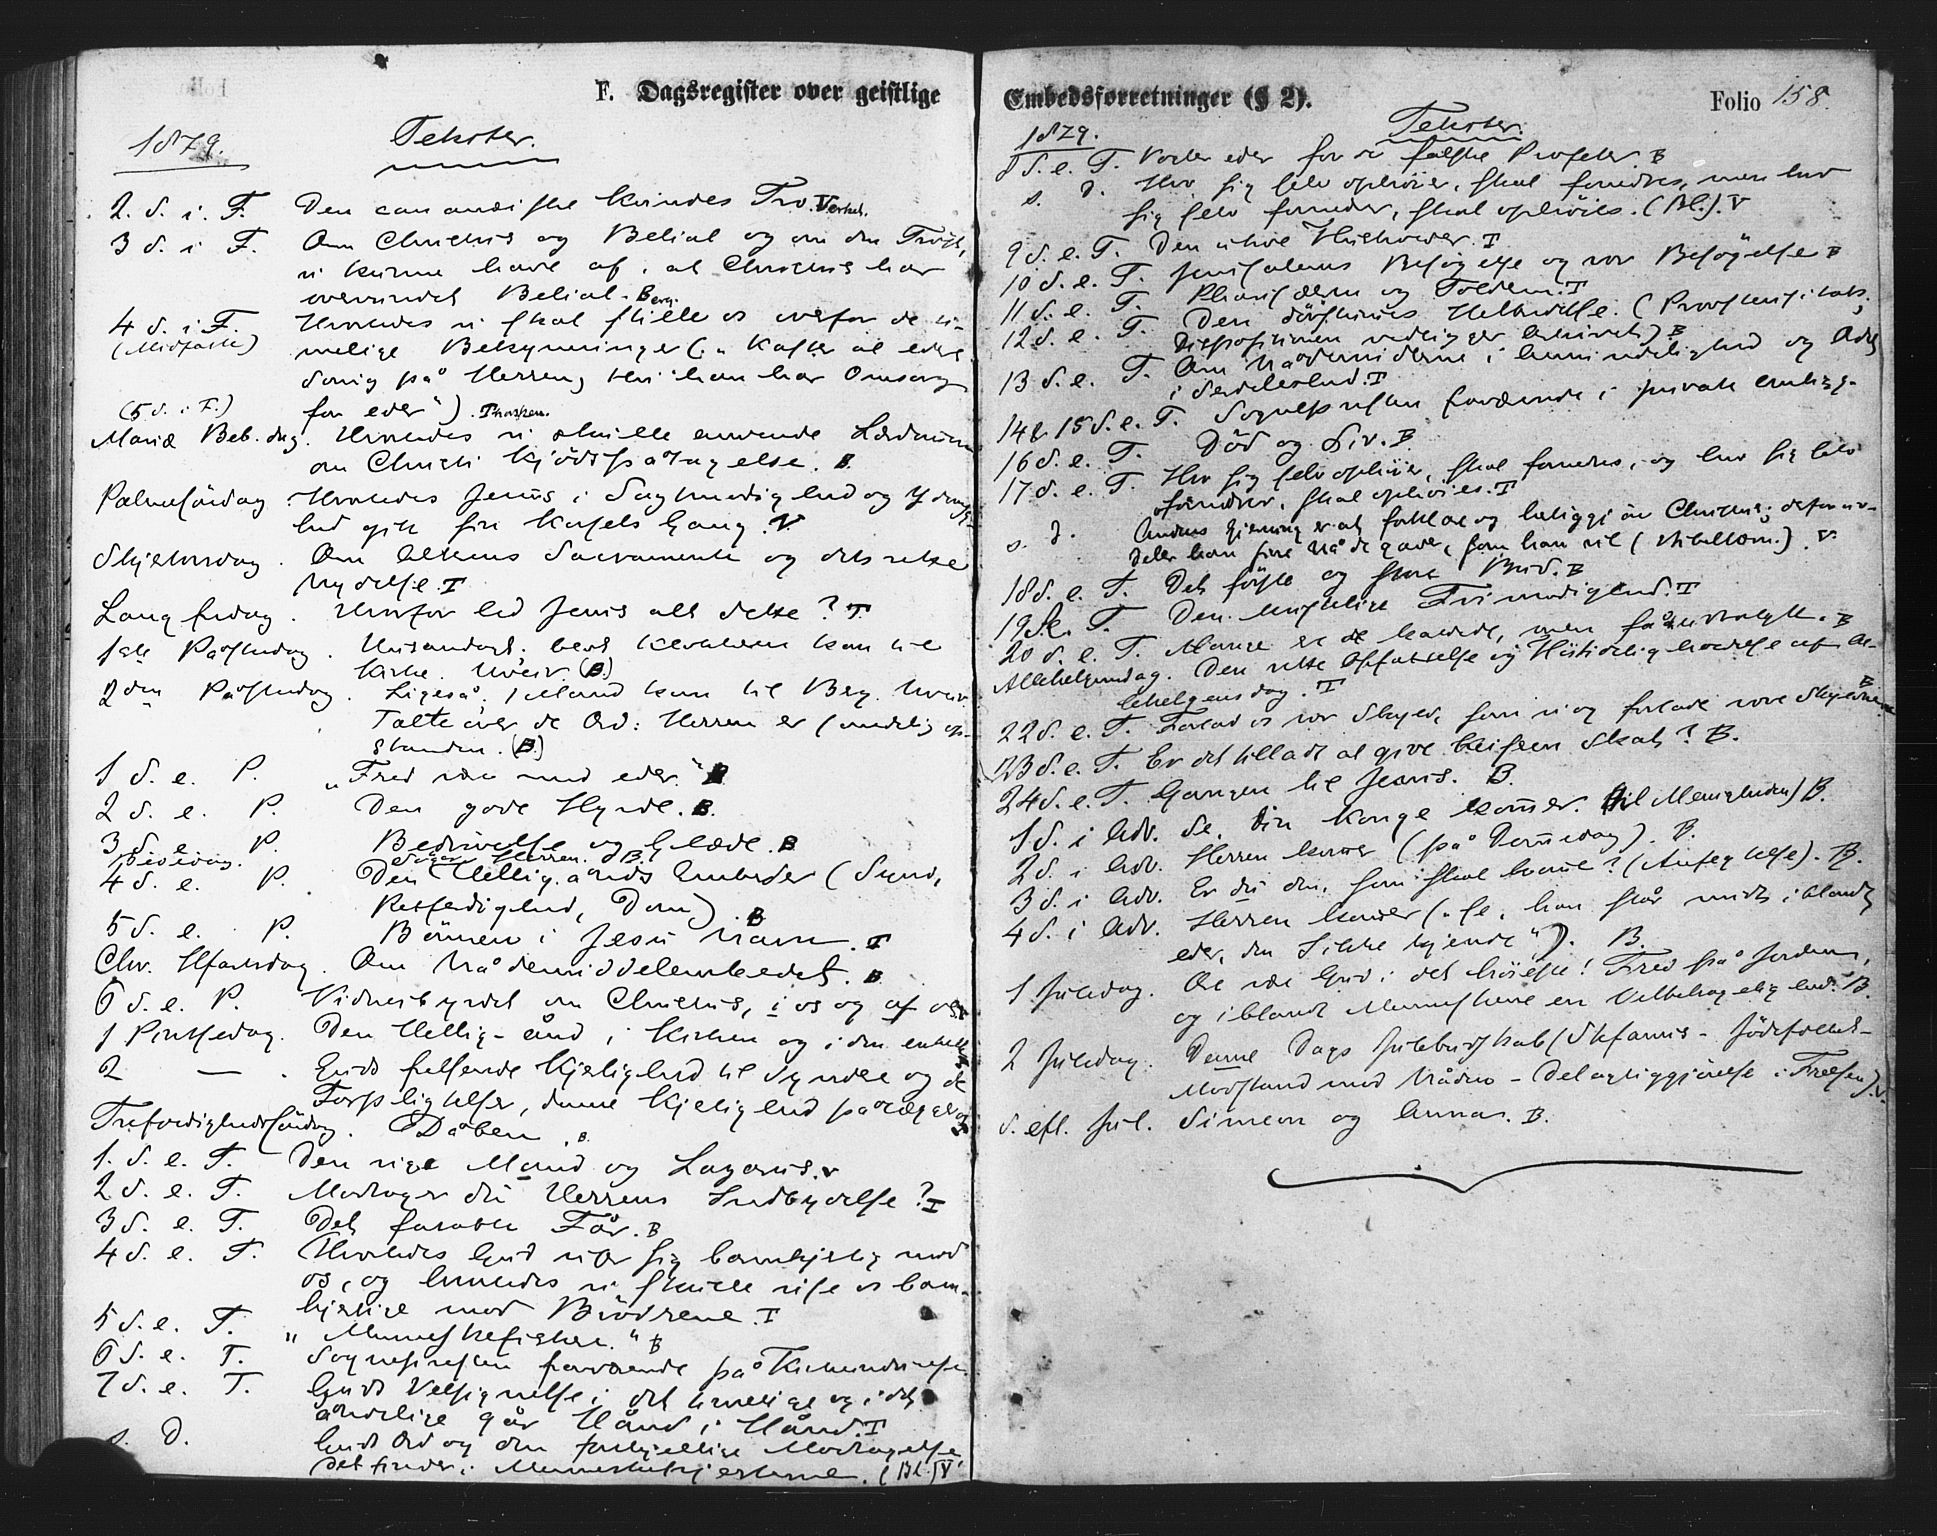 F. Dagsregister over geistlige
1879. Tekster.
2. S. i. F. Den cananæiske Kvindes Tro.
3 S. i F. Om Christus og Belial og om den Trøst,
vi kunne have af, at Christus har
overvundet Belial.
4 S. i F. Hvorledes vi skal stille os overfor de ti-
(Midfaste) melige Bekymringer („Kaster al eders
Sorg på Herren, thi han har Omsorg
(5 S. i F.) for eder“).
Mariæ Beb. dag. Hvorledes vi skulle anvende Lærdommen
om Christi Kjødspåtagelse. B.
Palmesøndag. Hvorledes Jesus i Sagtmodighed og Ydmyg-
hed gik sin Konges Gang. V
Skjetorsdag. Om Alterens Sacramente og dets rette
Nydelse. T
Langfredag. Hvorfor led Jesus alt dette? T.
1ste Påskedag.
Kirke. Uveir. (B.)
2den Påskedag. Ligeså, 1 Mand kom til Berg. Uveir.
Talte over de Ord: Herren er sandelig op-
standen. (B.)
1 S. e. P. „Fred være med eder“ B
2 S. e. P. Den gode Hyrde. B.
3 S. e. P. Bedrøvelse og Glæde. B
Bededag. Søger Herren. B.
4 S. e. P. Den Hellig-ånds Embeder (Synd,
Retfærdighed, Dom). B
5 S. e. P. Bønnen i Jesu Navn. T
Chr. Hfartsdag. Om Nådemiddelembedet. B
6 S. e. P. Vidnesbyrdet om Christus, i os og af os.
1 Pintsedag. Den Hellig-ånd i Kirken og i den enkelte
2 — . Guds frelsende Kjerlighed til Syndere og de
Forpligtelser, denne Kjerlighed pålægger os
Trefoldighedssøndag. Dåben. B.
1. S. e. T. Den rige Mand og Lazarus. V
2 S. e. T. Modtager du Herrens Indbydelse? T
3 S. e. T. Det fortabte Får. B
4 S. e. T. Hvorledes Gud viser sig barmhjertig mod
os, og hvorledes vi skulle vise os barm-
hjertige mod Brødrene. T
5 S. e. T. „Menneskefiskere.“ B
6 S. e. T. Sognepresten fraværende på
7 S. e. T. Guds Velsignelse i det timelige og i det
åndelige går Hånd i Hånd. T
s. D. Guds Ord og den forskjellige Modtagelse,
det finder i Menneskehjerterne. (Bl.) V
Embedsforretninger (§ 2). Folio 158.
1879. Tekster.
8 S. e. T. Vogter eder for de falske Profeter. B
s. D. Hvo sig selv ophøier, skal fornedres, men hvo
sig selv fornedrer, skal ophøies. (Bl.). V
9 S. e. T. Den utroe Husholder. T
10 S. e. T. Jerusalems Besøgelse og vor Besøgelse B
11 S. e. T. Pharisæeren og Tolderen. T
12 S. e. T. Den døvstummes Helbredelse. (Provstevisitats,
Dispositionen vedligger Arkivet) B
13 S. e. T. Om Nådemidlerne i Almindelighed og Dåb
i Serdeleshed. T
14 & 15 S. e. T. Sognepresten fraværende i private
16 S. e. T. Død og Liv. B
17 S. e. T. Hvo sig selv ophøier, skal fornedres, og hvo sig selv
fornedrer, skal ophøies. T
s. D. Åndens Gjerning er at forklare og herliggjøre Christus; derfor ud-
deler han sine Nådegaver, som han vil V
18 S. e. T. Det første og store Bud. B
19 S. e. T. Den christelige Frimodighed. T
20 S. e. T. Mange ere kaldede, men få udvalgte. B
Allehelgensdag. Den rette Opfattelse og Høitideligholdelse af Al-
lehelgensdag. T
22 S. e. T. Forlad os vor Skyld, som vi og forlade vore Skyldnere B
23 S. e. T. Er det tilladt at give Keiseren Skat? B.
24 S. e. T. Gangen til Jesus. B.
1 S. i Adv. Se, din Konge kommer. (til Menigheden) B.
2 S. i Adv. Herren kommer (på Dommedag). B.
3 S. i Adv. Er du den, som skal komme? (Anfegtelse). B.
4 S. i Adv. Herren kommer („se, han står midt iblandt
eder, den I ikke kjende“). B.
1 Juledag. Ære være Gud i det høieste! Fred på Jorden,
og iblandt Menneskene en Velbehagelighed. B.
2 Juledag. Denne Dags Julebudskab (Stefanus - Jødefolket-
Modstand mod Nåden - Delagtiggjørelse i Frelsen). V.
S. eft. Jul. Simeon og Anna. B.